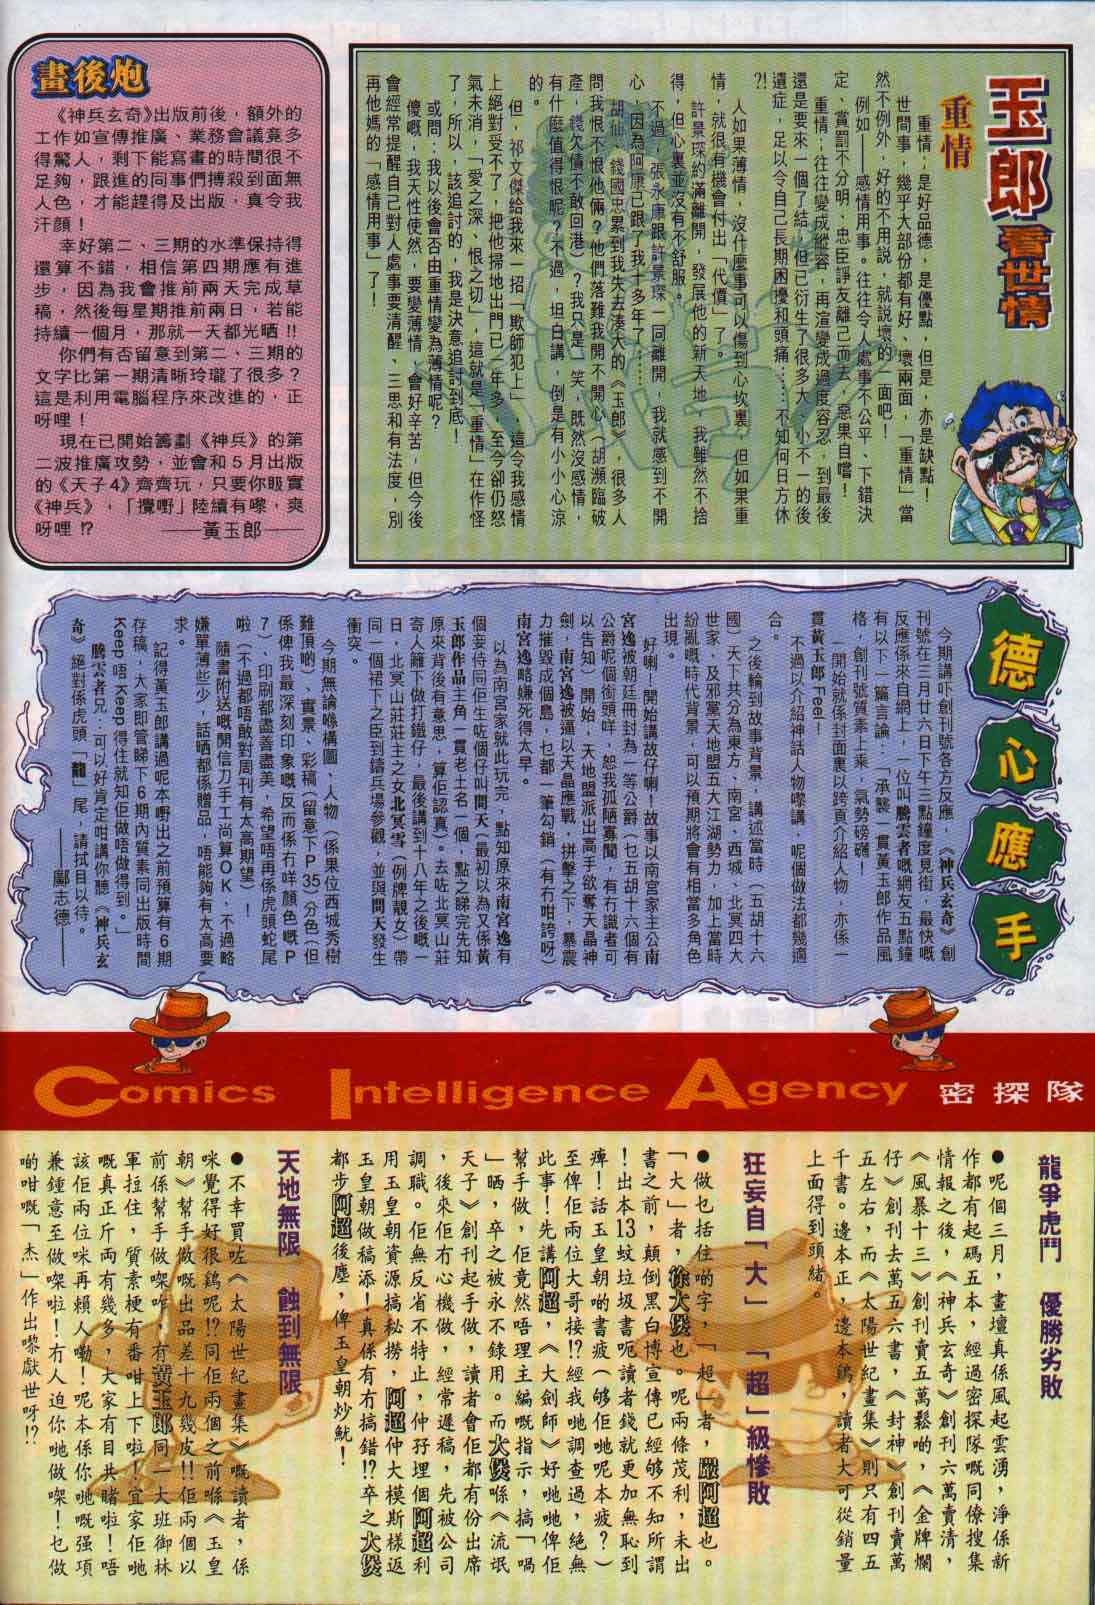 玉郎看世情
重情
重情，是好品德，是優點，但是，亦是缺點！
世間事，幾乎大部份都有好、壞兩面，「重情」當
然不例外，好的不用說，就說壞的一面吧！
例如——感情用事。往往令人處事不公平、下錯決
定、賞罰不分明、忠臣諍友離己而去，惡果自嚐！
重情，往往變成縱容，再渲變成過度容忍，到最後
還是要來一個了結，但已衍生了很多大、小不一的後
遺症，足以令自己長期困擾和頭痛……不知何日方休
?!
人如果薄情，沒什麼事可以傷到心坎裏，但如果重
情，就很有機會付出「代價」了。
許景琛約滿離開，發展他的新天地，我雖然不捨
得，但心裏並沒有不舒服。
不過，張永康跟許景琛一同離開，我就感到不開
心，因為阿康已跟了我十多年了……
胡仙、錢國忠累到我失去湊大的《玉郎》，很多人
問我恨不恨他倆？他們落難我開不開心（胡瀕臨破
產，錢欠債不敢回港）？我只是一笑，既然沒感情，
有什麼值得恨呢？不過，坦白講，倒是有小小心涼
的。
但，祁文傑給我來一招「欺師犯上」，這令我感情
上絕對受不了，把他掃地出門已一年多，至今卻仍怒
氣未消，「愛之深、恨之切」，這就是「重情」在作怪
了，所以，該追討的，我是決意追討到底！
或問：我以後會否由重情變為薄情呢？
傻嘅，我天性使然，要變薄情，會好辛苦，但今後
會經常提醒自己對人處事要清醒、三思和有法度，別
再他媽的「感情用事」了！
畫後炮
《神兵玄奇》出版前後，額外的
工作如宣傳推廣、業務會議竟多
得驚人，剩下能寫畫的時間很不
足夠，跟進的同事們搏殺到面無
人色，才能趕得及出版，真令我
汗顏！
幸好第二、三期的水準保持得
還算不錯，相信第四期應有進
步，因為我會推前兩天完成草
稿，然後每星期推前兩日，若能
持續一個月，那就一天都光晒!!
你們有否留意到第二、三期的
文字比第一期清晰玲瓏了很多？
這是利用電腦程序來改進的，正
呀哩！
現在已開始籌劃《神兵》的第
二波推廣攻勢，並會和5月出版
的《天子4》齊齊玩，只要你眼實
《神兵》，「攪嘢」陸續有嚟，爽
呀哩!?　——黃玉郎——
德心應手
今期講吓創刊號各方反應，《神兵玄奇》創
刊號在三月廿六日下午三點鐘度見街，最快嘅
反應係來自網上，一位叫騰雲者嘅網友五點鐘
有以下一篇言論：「承襲一貫黃玉郎作品風
格，創刊號質素上乘，氣勢磅礴！
一開始就係封面裏以跨頁介紹人物，亦係一
貫黃玉郎 Feel！
不過以介紹神話人物嚟講，呢個做法都幾適
合。
之後輪到故事背景，講述當時（五胡十六
國）天下共分為東方、南宮、西城、北冥四大
世家，及邪黨天地盟五大江湖勢力，加上當時
紛亂嘅時代背景，可以預期將會有相當多角色
出現。
好喇！開始講故仔喇！故事以南宮家主公南
宮逸被朝廷冊封為一等公爵（乜五胡十六個有
公爵呢個銜頭咩，恕我孤陋寡聞，有冇識者可
以告知）開始，天地盟派出高手欲奪天晶神
劍，南宮逸被逼以天晶應戰，拼擊之下，暴震
力摧毀成個島，乜都一筆勾銷（有冇咁誇呀）
南宮逸略嫌死得太早。
以為南宮家就此玩完，點知原來南宮逸有
個妾侍同佢生咗個仔叫問天（最初以為又係黃
玉郎作品主角一貫老土名一個，點之睇完先知
原來背後有意思，算佢認真）。去咗北冥山莊
寄人籬下做打鐵仔，最後講到十八年之後嘅一
日，北冥山莊莊主之女北冥雪（例牌靚女）帶
同一個裙下之臣到鑄兵場參觀，並與問天發生
衝突。
今期無論喺構圖、人物（係果位西城秀樹
難頂啲）、實景、彩稿（留意下P35）分色（但
係俾我最深刻印象嘅反而係冇咩顏色嘅P
7）、印刷都盡善盡美，希望唔再係虎頭蛇尾
啦（不過都唔敢對周刊有太高期望）！
隨書附送嘅開信刀手工尚算OK，不過略
嫌單薄些少，話晒都係贈品，唔能夠有太高要
求。
記得黃玉郎講過呢本嘢出之前預算有6期
存稿，大家即管睇下6期內質素同出版時間
Keep唔Keep得住就知佢做唔做得到。」
騰雲者兄：可以好肯定咁講你聽，《神兵玄
奇》絕對係虎頭「龍」尾，請拭目以待。
——鄺志德——
Comics Intelligence Agency 密探隊
龍爭虎鬥　優勝劣敗
●呢個三月，畫壇真係風起雲湧，淨係新
作都有起碼五本，經過密探隊嘅同僚搜集
情報之後，《神兵玄奇》創刊六萬賣清，
《風暴十三》創刊賣五萬鬆啲，《金牌爛
仔》創刊去萬五六書，《封神》創刊賣萬
五左右，而《太陽世紀畫集》則只有四五
千書。邊本正，邊本鷄，讀者大可從銷量
上面得到頭緒。
狂妄自「大」　「超」級慘敗
●做乜括住啲字，「超」者，嚴阿超也。
「大」者，徐大煲也。呢兩條茂利，未出
書之前，顛倒黑白博宣傳已經夠不知所謂
！出本13蚊垃圾書呃讀者錢就更加無恥到
痺！話玉皇朝啲書疲（夠佢哋呢本疲？）
至俾佢兩位大哥接!?經我哋調查過，絕無
此事！先講阿超，《大劍師》好哋哋俾佢
幫手做，佢竟然唔理主編嘅指示，搞「喎
」晒，卒之被永不錄用。而大煲喺《流氓
天子》創刊起手做，讀者會佢都有份出席
，後來佢有心機做，經常遲稿，先被公司
調職。佢無反省不特止，仲孖埋個阿超利
用玉皇朝資源搞秘撈，阿超仲大模斯樣返
玉皇朝做稿添！真係有冇搞錯!?卒之大煲
都步阿超後塵，俾玉皇朝炒魷！
天地無限　蝕到無限
●不幸買咗《太陽世紀畫集》嘅讀者，係
咪覺得好很鷄呢!?同佢兩個之前喺《玉皇
朝》幫手做嘅出品差十九幾皮!!佢兩個以
前係幫手做㗎咋，有黃玉郎同一大班御林
軍拉住，質素梗有番咁上下啦！宜家佢哋
嘅真正斤両有幾多，大家有目共睹啦！唔
該佢兩位咪再賴人嘞！呢本係你哋嘅强項
兼鍾意至做㗎啦！冇人迫你哋做㗎！乜做
啲咁嘅「杰」作出嚟獻世呀!?